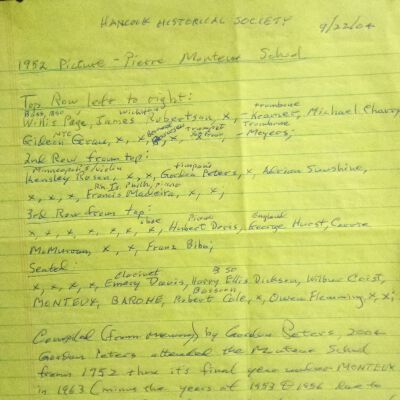 HANCOCK HISTORICAL SOCIETY
9/22/04
1952 Picture - Pierre Monteux School
Top Row left to right:
Bass, BSO Wichita trombone
Willis Page, James Robertson, x, - Kramer, Michael Charry
NYC Trumpet Trombone
Gideon Grau, x, x, x, - Meyers;
2nd Row from top:
Minneapolis/violin timpani
Hensley Rosen, x, x, Gordon Peters, x, Adrian Sunshine,
Rh. Is. Philh., piano
x, x, x, Francis Madeira, x, x,
3rd Row from top: oboe Piano England
x, x, x, x, x, x, x, Hubert Doris, George Hurst, George
McMurran, x, x, Franz Bibo;
Seated: Clarinet BSO
x, x, x, x, Emery Davis, Harry Ellis Dickson, Wilbur Crist,
Bassoon
MONTEUX, BARONE, Robert Cole, x, Owen Flemming, x, x;
Compiled (from memory) by Gordon Peters, 2004
Gordon Peters attended the Monteux School
from 1952 thru it's final year under MONTEUX
in 1963 (minus the years of 1953 & 1956 due to